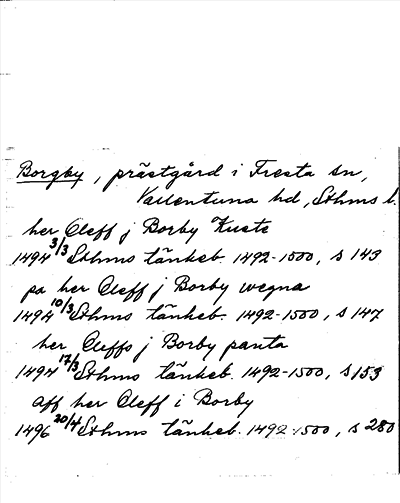 Borgby, prästgård i Fresta sn,
Vallentuna hd, Sthms l.
her Oleff j Borby Kuste
1494 3/3 Sthms tänkeb. 1492-1500, s 143
pa her Oleff j Borby wegna
1494 10/3 Sthms tänkeb. 1492-1500, s 147
her Oleffs j Borby panta
1494 17/3 Sthms tänkeb. 1492-1500, s 153
aff her Oleff i Borby
1496 20/4 Sthms tänkeb. 1492-1500, s 280